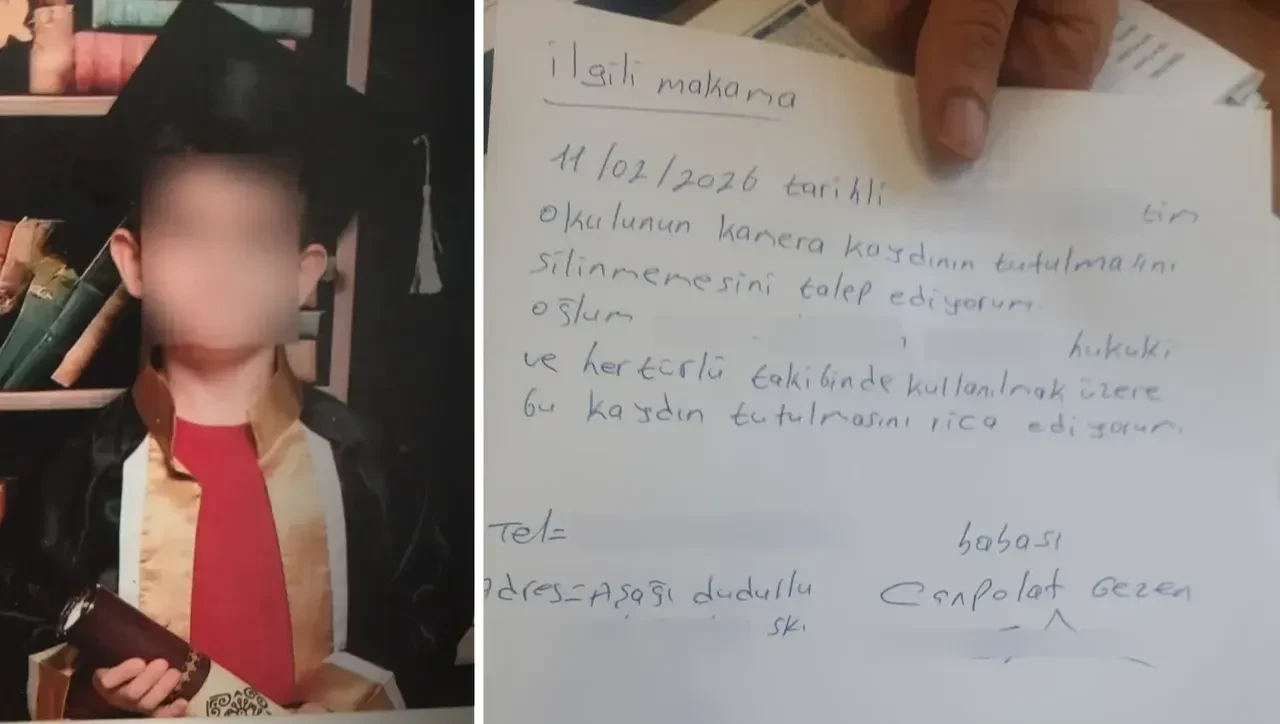 ilgili makama
11/02/2026 tarihli tim
okulunun kamera kaydının tutulmasını
silinmemesini talep ediyorum.
oğlum , hukuki
ve hertürlü takibinde kullanılmak üzere
bu kaydın tutulmasını rica ediyorum.
Tel=
Adres=Aşağı dudullu
sk.
babası
Canpolat Gezen